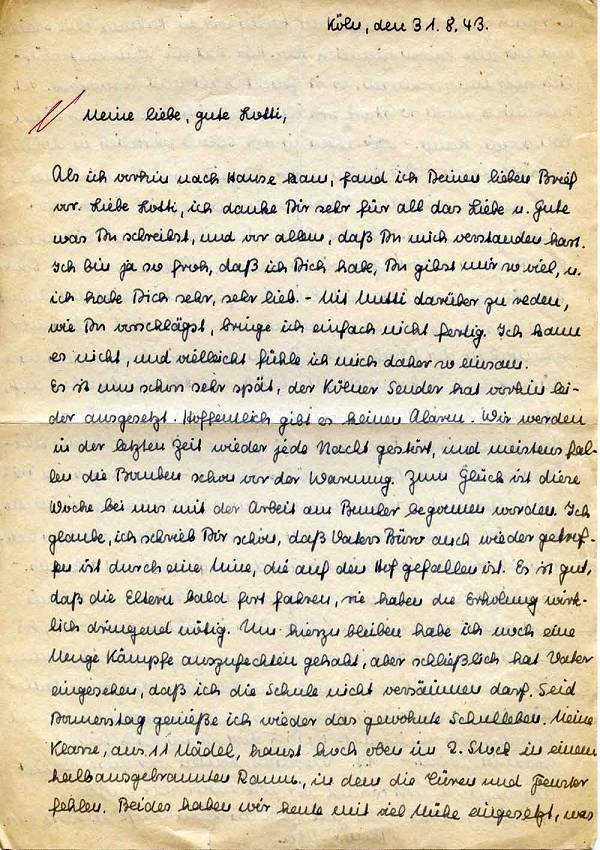 Köln, den 31.8.43.
Meine liebe, gute Lotti,
Als ich vorhin nach Hause kam, fand ich Deinen lieben Brief
vor. Liebe Lotti, ich danke Dir sehr für all das Liebe u. Gute
was Du schreibst, und vor allem, daß Du mich verstanden hast.
Ich bin ja so froh, daß ich Dich habe, Du gibst mir so viel, u.
ich habe Dich sehr, sehr lieb. - Mit Mutti darüber zu reden,
wie Du vorschlägst, bringe ich einfach nicht fertig. Ich kann
es nicht, und vielleicht fühle ich mich daher so einsam.
Es ist nun schon sehr spät, der Kölner Sender hat vorhin lei-
der ausgesetzt. Hoffentlich gibt es keinen Alarm. Wir werden
in der letzten Zeit wieder jede Nacht gestört, und meistens fal-
len die Bomben schon vor der Warnung. Zum Glück ist diese
Woche bei uns mit der Arbeit am Bunker begonnen worden. Ich
glaube, ich schrieb Dir schon, daß Vaters Büro auch wieder getrof-
fen ist durch eine Mine, die auf den Hof gefallen ist. Es ist gut,
daß die Eltern bald fort fahren, sie haben die Erholung wirk-
lich dringend nötig. Um hierzu bleiben habe ich noch eine
Menge Kämpfe auszufechten gehabt, aber schließlich hat Vater
eingesehen, daß ich die Schule nicht versäumen darf. Seid
Donnerstag genieße ich wieder das gewohnte Schulleben. Meine
Klasse, aus 11 Mädel, haust hoch oben im 2. Stock in einem
halbausgebrannten Raum, in dem die Türen und Fenster
fehlen. Beides haben wir heute mit viel Mühe eingesetzt, was